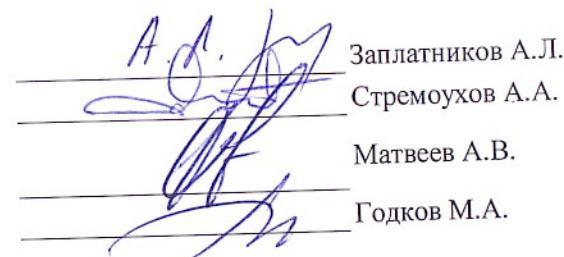 Заплатников А.Л.
Стремоухов А.А.
Матвеев А.В.
Годков М.А.